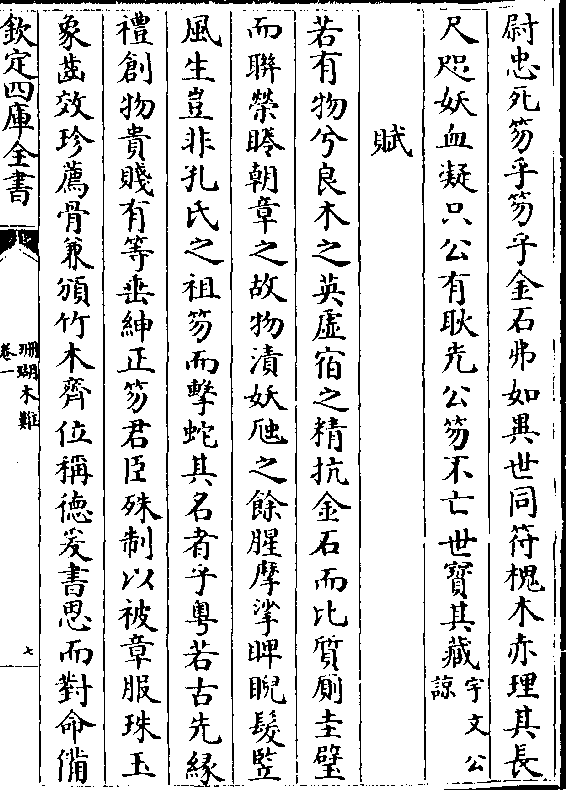 尉忠死笏乎笏乎金石弗如異世同符槐木亦理其長
尺咫妖血凝只公有耿光公笏不亡世寳其藏宇文公
諒
賦
若有物兮良木之英虚宿之精抗金石而比質厠圭璧
而聯榮睠朝章之故物漬妖虺之餘腥摩挲睥睨髮竪
風生豈非孔氏之祖笏而擊蛇其名者乎粤若古先縁
禮創物貴賤有等垂紳正笏君臣殊制以被章服珠玉
象齒效珍薦骨兼頒竹木齊位稱德爰書思而對命備
欽定四庫全書
珊瑚木難
卷一
七